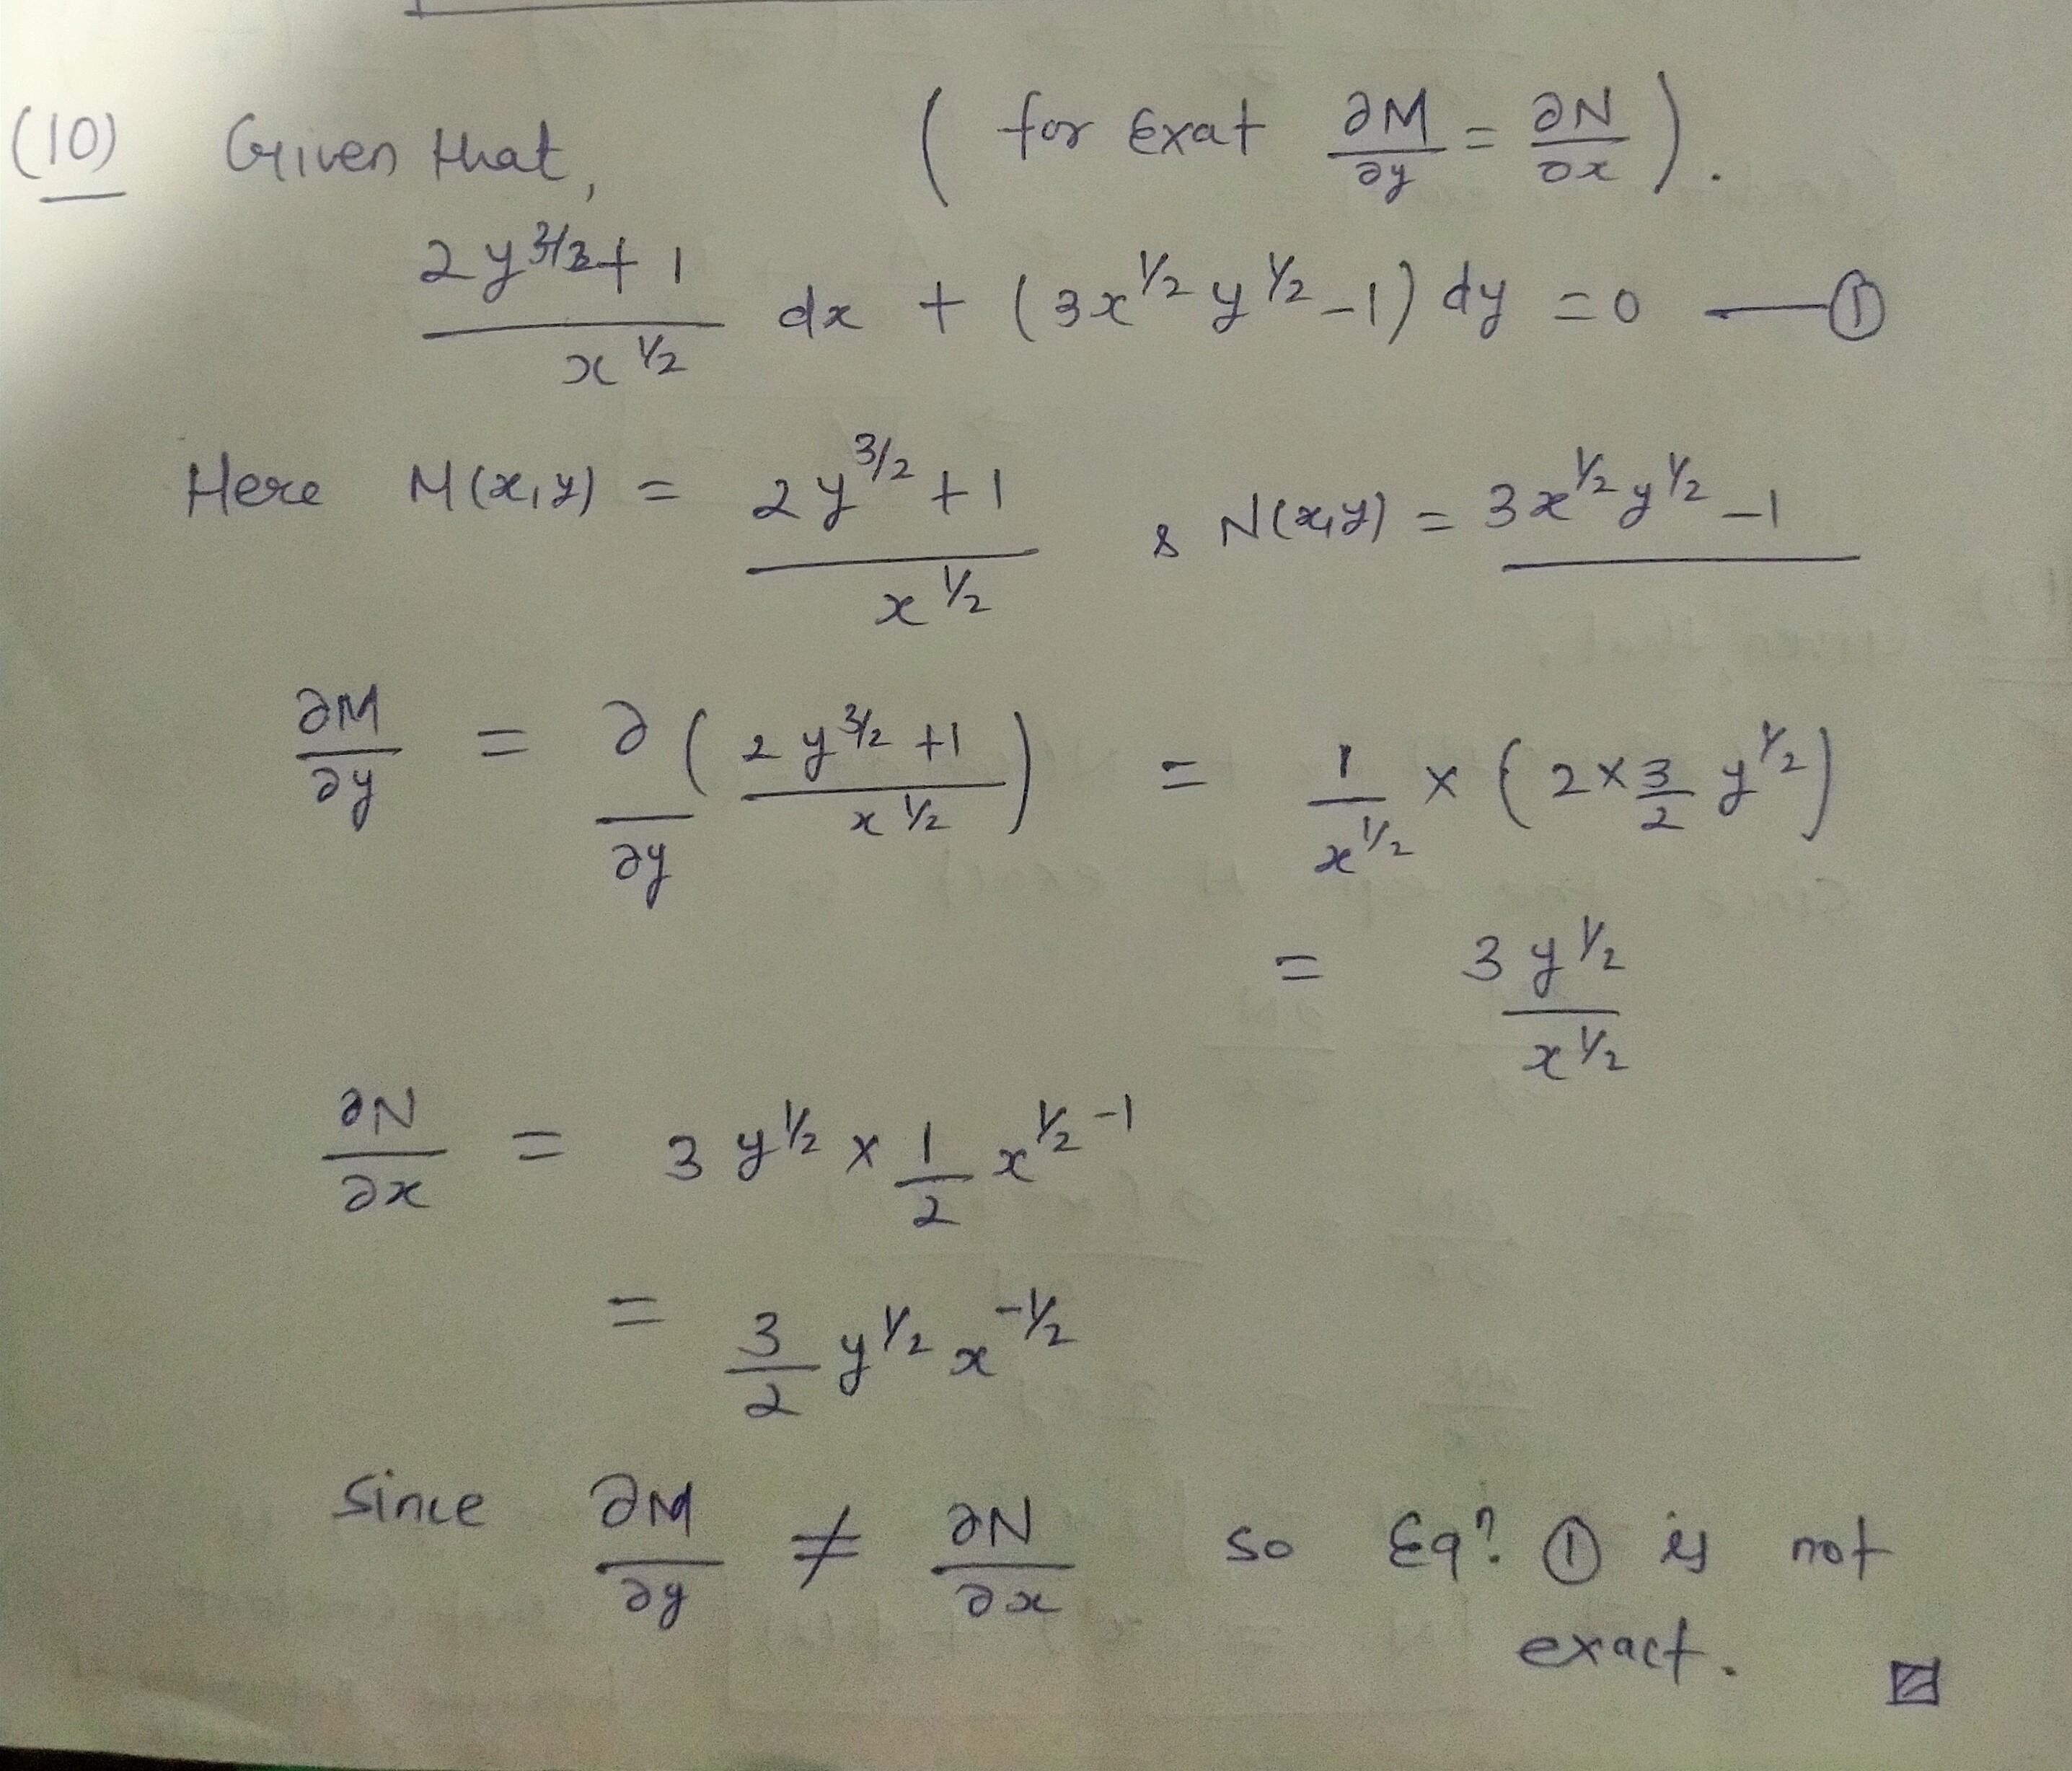 (10) Given that, ( for Exat ∂M/∂y = ∂N/∂x ).
2y^3/2 + 1 / x^1/2 dx + (3x^1/2 y^1/2 - 1) dy = 0 — ①
Here M(x,y) = 2y^3/2 + 1 / x^1/2 & N(x,y) = 3x^1/2 y^1/2 - 1
∂M/∂y = ∂/∂y ( 2y^3/2 + 1 / x^1/2 ) = 1/x^1/2 × ( 2 × 3/2 y^1/2 )
= 3y^1/2 / x^1/2
∂N/∂x = 3y^1/2 × 1/2 x^1/2 - 1
= 3/2 y^1/2 x^-1/2
Since ∂M/∂y ≠ ∂N/∂x so Eqⁿ ① is not
exact.